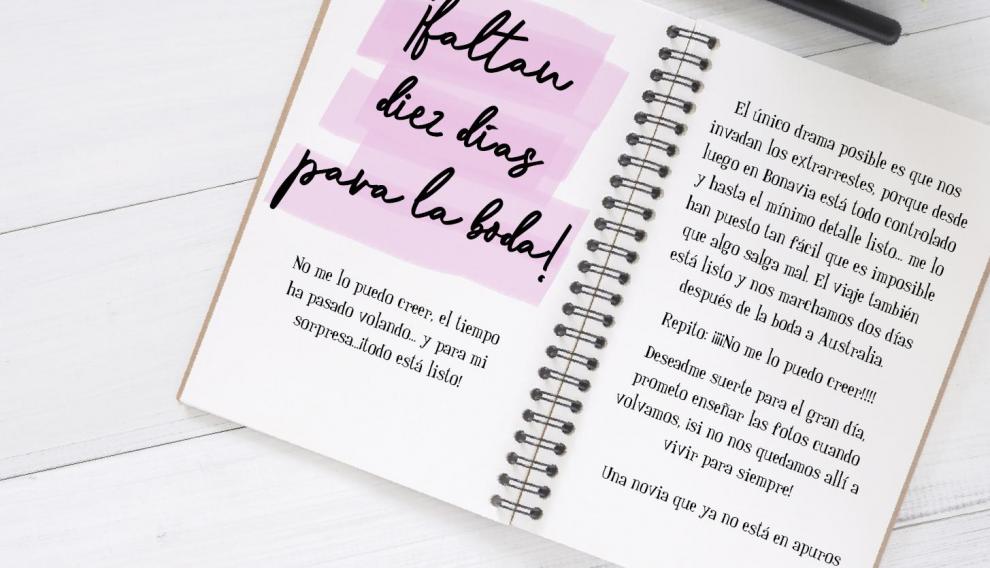 ¡faltan
diez días
para la boda!
No me lo puedo creer, el tiempo
ha pasado volando... y para mi
sorpresa...¡todo está listo!
El único drama posible es que nos
invadan los extrarrestes, porque desde
luego en Bonavia está todo controlado
y hasta el mínimo detalle listo... me lo
han puesto tan fácil que es imposible
que algo salga mal. El viaje también
está listo y nos marchamos dos días
después de la boda a Australia.
Repito: ¡¡¡¡No me lo puedo creer!!!!
Deseadme suerte para el gran día,
prometo enseñar las fotos cuando
volvamos, ¡si no nos quedamos allí a
vivir para siempre!
Una novia que ya no está en apuros